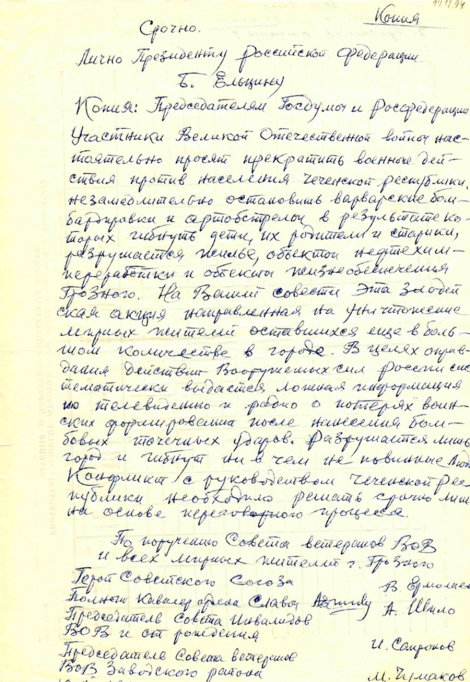 Копия
Срочно.
Лично Президенту Российской Федерации
Б. Ельцину
Копия: Председателям Госдумы и Росфедерации
Участники Великой Отечественной войны нас-
тоятельно просят прекратить военные дей-
ствия против населения Чеченской республики,
незамедлительно остановить варварские бом-
бардировки и артобстрелы в результате ко-
торых гибнуть дети, их родители и старики,
разрушается жилье, объекты нефтехим-
переработки и объекты жизнеобеспечения
Грозного. На Вашей совести эта злодей
ская акция направленная на уничтожение
мирных жителей оставшихся еще в боль-
шом количестве в городе. В целях оправ-
дания действий Вооруженных сил России сис
тематически выдается ложная информация
по телевидению и радио о потерях воин-
ских формирований после нанесения бом-
бовых точечных ударов. Разрушается лишь
город и гибнут ни в чем не повинные люди
Конфликт с руководством Чеченской Рес
публики необходимо решать срочно лишь
на основе переговорного процесса.
По поручению Совета ветеранов ВОВ
и всех мирных жителей г. Грозного
Герой Советского Союза В. Ермолаев
Полный Кавалер ордена Славы А. Швыло
Председатель Совета Инвалидов
ВОВ и от рождения И. Сапронов
Председатель Совета ветеранов
ВОВ Заводского района М. Чумаков